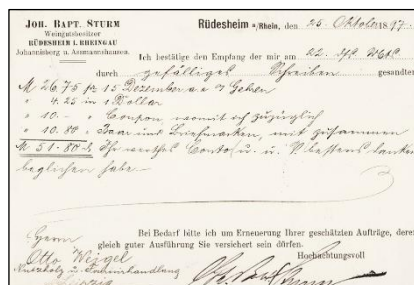 JOH. BAPT. STURM
Weingutsbesitzer
RÜDESHEIM I. RHEINGAU
Johannisberg u. Assmannshausen.
Rüdesheim a/Rhein, den 25. Oktober 1897.
Ich bestätige den Empfang der mir am 22.
durch gefälliges Schreiben gesandten
M 26.75 15 Dezember
" 4.25 in 1 Dollar
" 10.- " Coupon womit ich zuzüglich
" 10.80 " Baar und Briefmarken, mit zusammen
M 51.80 Ihr werthes Conto u. bestens dankend
beglichen habe.
Bei Bedarf bitte ich um Erneuerung Ihrer geschätzten Aufträge, deren
gleich guter Ausführung Sie versichert sein dürfen.
Hochachtungsvoll
Herrn
Otto Weigel
Leipzig